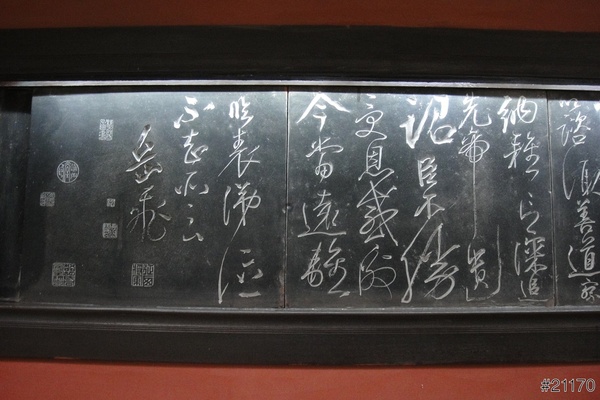 諮諏善道察
納雅言深追
先帝遺
詔臣不勝
受恩感激
今當遠離
臨表涕泣
不知所云
岳飛
#21170